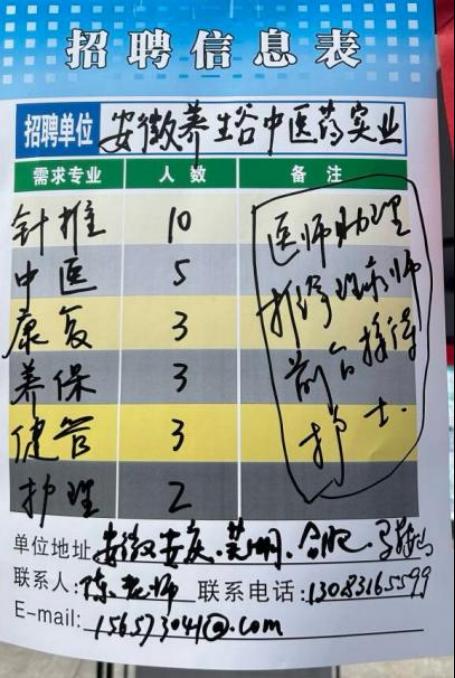 招聘信息表
招聘单位 安徽养生谷中医药实业
需求专业 人数 备注
针推 10 医师助理
中医 5 推拿理疗师
康复 3 前台接待
养保 3 护士.
健管 3
护理 2
单位地址 安徽安庆.芜湖.合肥.马鞍山
联系人:陈老师 联系电话:13083165599
E-mail: 15657304@.com